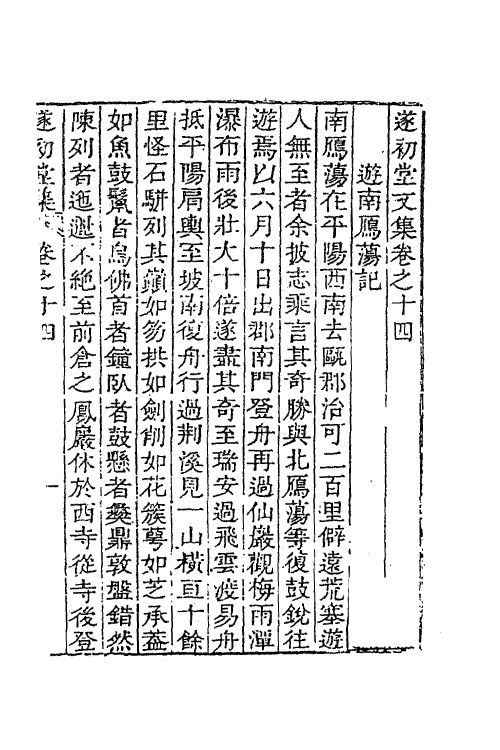 遂初堂文集卷之十四
遊南鴈蕩記
南鴈蕩在平陽西南去甌郡治可二百里僻遠荒塞遊
人無至者余披志乘言其奇勝與北鴈蕩等復鼓銳往
遊焉以六月十日出郡南門登舟再過仙巖觀梅雨潭
瀑布雨後壯大十倍遂盡其奇至瑞安過飛雲渡易舟
抵平陽肩輿至坡南復舟行過荆溪見一山橫亘十餘
里怪石騈列其鑱如笏拱如劍削如花簇萼如芝承葢
如魚鼓鬣者鳥佛首者鐘臥者鼓懸者彝鼎敦盤錯然
陳列者迤邐不絕至前倉之鳳巖休於西寺從寺後登
遂初堂集 卷之十四 一